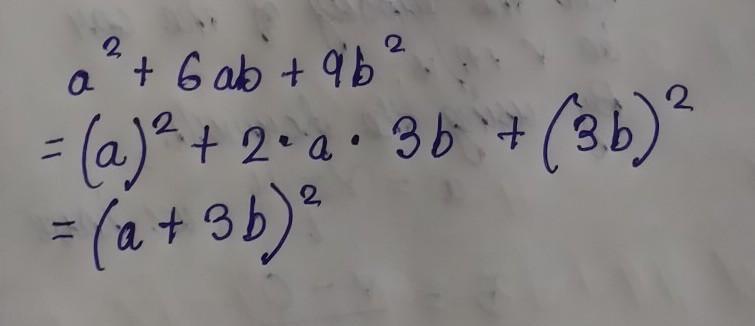 a² + 6ab + 9b²
= (a)² + 2·a·3b + (3b)²
= (a + 3b)²